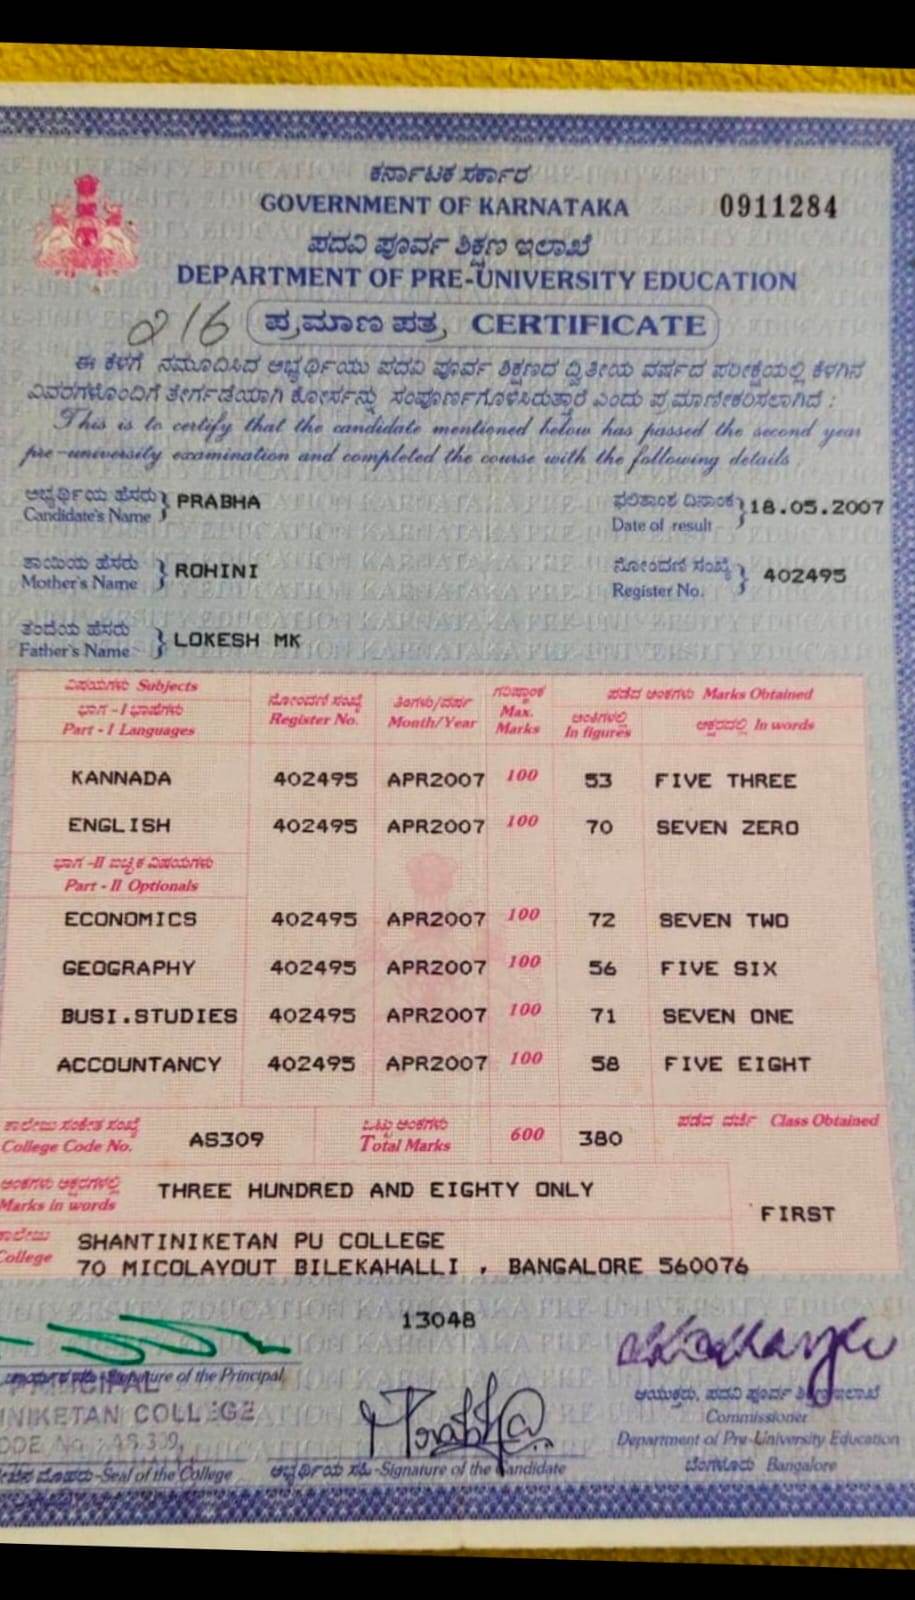 ಕರ್ನಾಟಕ ಸರ್ಕಾರ
GOVERNMENT OF KARNATAKA 0911284
ಪದವಿ ಪೂರ್ವ ಶಿಕ್ಷಣ ಇಲಾಖೆ
DEPARTMENT OF PRE-UNIVERSITY EDUCATION
216 ಪ್ರಮಾಣ ಪತ್ರ CERTIFICATE
ಈ ಕೆಳಗೆ ನಮೂದಿಸಿದ ಅಭ್ಯರ್ಥಿಯು ಪದವಿ ಪೂರ್ವ ಶಿಕ್ಷಣದ ದ್ವಿತೀಯ ವರ್ಷದ ಪರೀಕ್ಷೆಯಲ್ಲಿ ಕೆಳಗಿನ
ವಿವರಗಳೊಂದಿಗೆ ತೇರ್ಗಡೆಯಾಗಿ ಕೋರ್ಸನ್ನು ಸಂಪೂರ್ಣಗೊಳಿಸಿರುತ್ತಾರೆ ಎಂದು ಪ್ರಮಾಣೀಕರಿಸಲಾಗಿದೆ :
This is to certify that the candidate mentioned below has passed the second year
pre-university examination and completed the course with the following details
ಅಭ್ಯರ್ಥಿಯ ಹೆಸರು PRABHA ಫಲಿತಾಂಶ ದಿನಾಂಕ 18.05.2007
Candidate's Name Date of result
ತಾಯಿಯ ಹೆಸರು ROHINI ನೋಂದಣಿ ಸಂಖ್ಯೆ 402495
Mother's Name Register No.
ತಂದೆಯ ಹೆಸರು LOKESH MK
Father's Name
ವಿಷಯಗಳು Subjects ನೋಂದಣಿ ಸಂಖ್ಯೆ ತಿಂಗಳು/ವರ್ಷ ಗರಿಷ್ಠಾಂಕ ಪಡೆದ ಅಂಕಗಳು Marks Obtained
ಭಾಗ -I ಭಾಷೆಗಳು Register No. Month/Year Max. ಅಂಕಿಗಳಲ್ಲಿ ಅಕ್ಷರದಲ್ಲಿ In words
Part - I Languages Marks In figures
KANNADA 402495 APR2007 100 53 FIVE THREE
ENGLISH 402495 APR2007 100 70 SEVEN ZERO
ಭಾಗ -II ಐಚ್ಛಿಕ ವಿಷಯಗಳು
Part - II Optionals
ECONOMICS 402495 APR2007 100 72 SEVEN TWO
GEOGRAPHY 402495 APR2007 100 56 FIVE SIX
BUSI.STUDIES 402495 APR2007 100 71 SEVEN ONE
ACCOUNTANCY 402495 APR2007 100 58 FIVE EIGHT
ಕಾಲೇಜು ಸಂಕೇತ ಸಂಖ್ಯೆ ಒಟ್ಟು ಅಂಕಗಳು ಪಡೆದ ದರ್ಜೆ Class Obtained
College Code No. AS309 Total Marks 600 380
ಅಂಕಗಳು ಅಕ್ಷರಗಳಲ್ಲಿ
Marks in words THREE HUNDRED AND EIGHTY ONLY
FIRST
ಕಾಲೇಜು SHANTINIKETAN PU COLLEGE
College 70 MICOLAYOUT BILEKAHALLI , BANGALORE 560076
13048
Signature of the Principal
PRINCIPAL
NIKETAN COLLEGE
ಆಯುಕ್ತರು, ಪದವಿ ಪೂರ್ವ ಶಿಕ್ಷಣ ಇಲಾಖೆ
Commissioner
Department of Pre-University Education
ಬೆಂಗಳೂರು Bangalore
Prabha
Seal of the College ಅಭ್ಯರ್ಥಿಯ ಸಹಿ-Signature of the Candidate